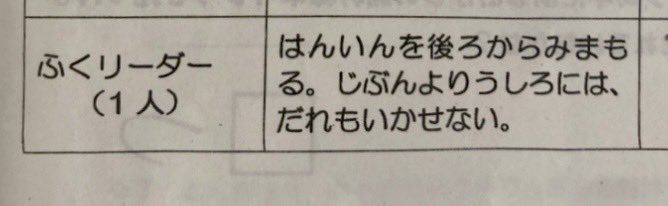 ふくリーダー
（1人）
はんいんを後ろからみまも
る。じぶんよりうしろには、
だれもいかせない。